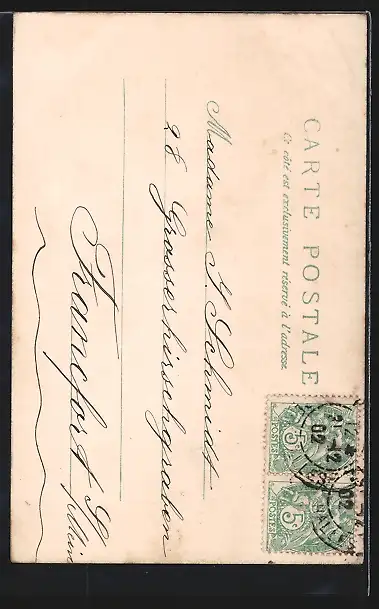 CARTE POSTALE
Ce côté est exclusivement réservé à l'adresse
Madame J. Schmidt
28 Grosserhirschgraben
Francfort s/
Mein
5c
POSTES
5c
POSTES
12
02
02